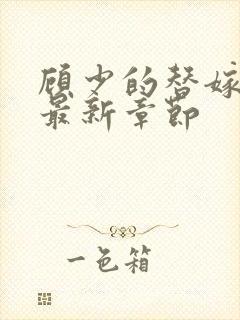 顾少的替嫁
最新章节
一色箱